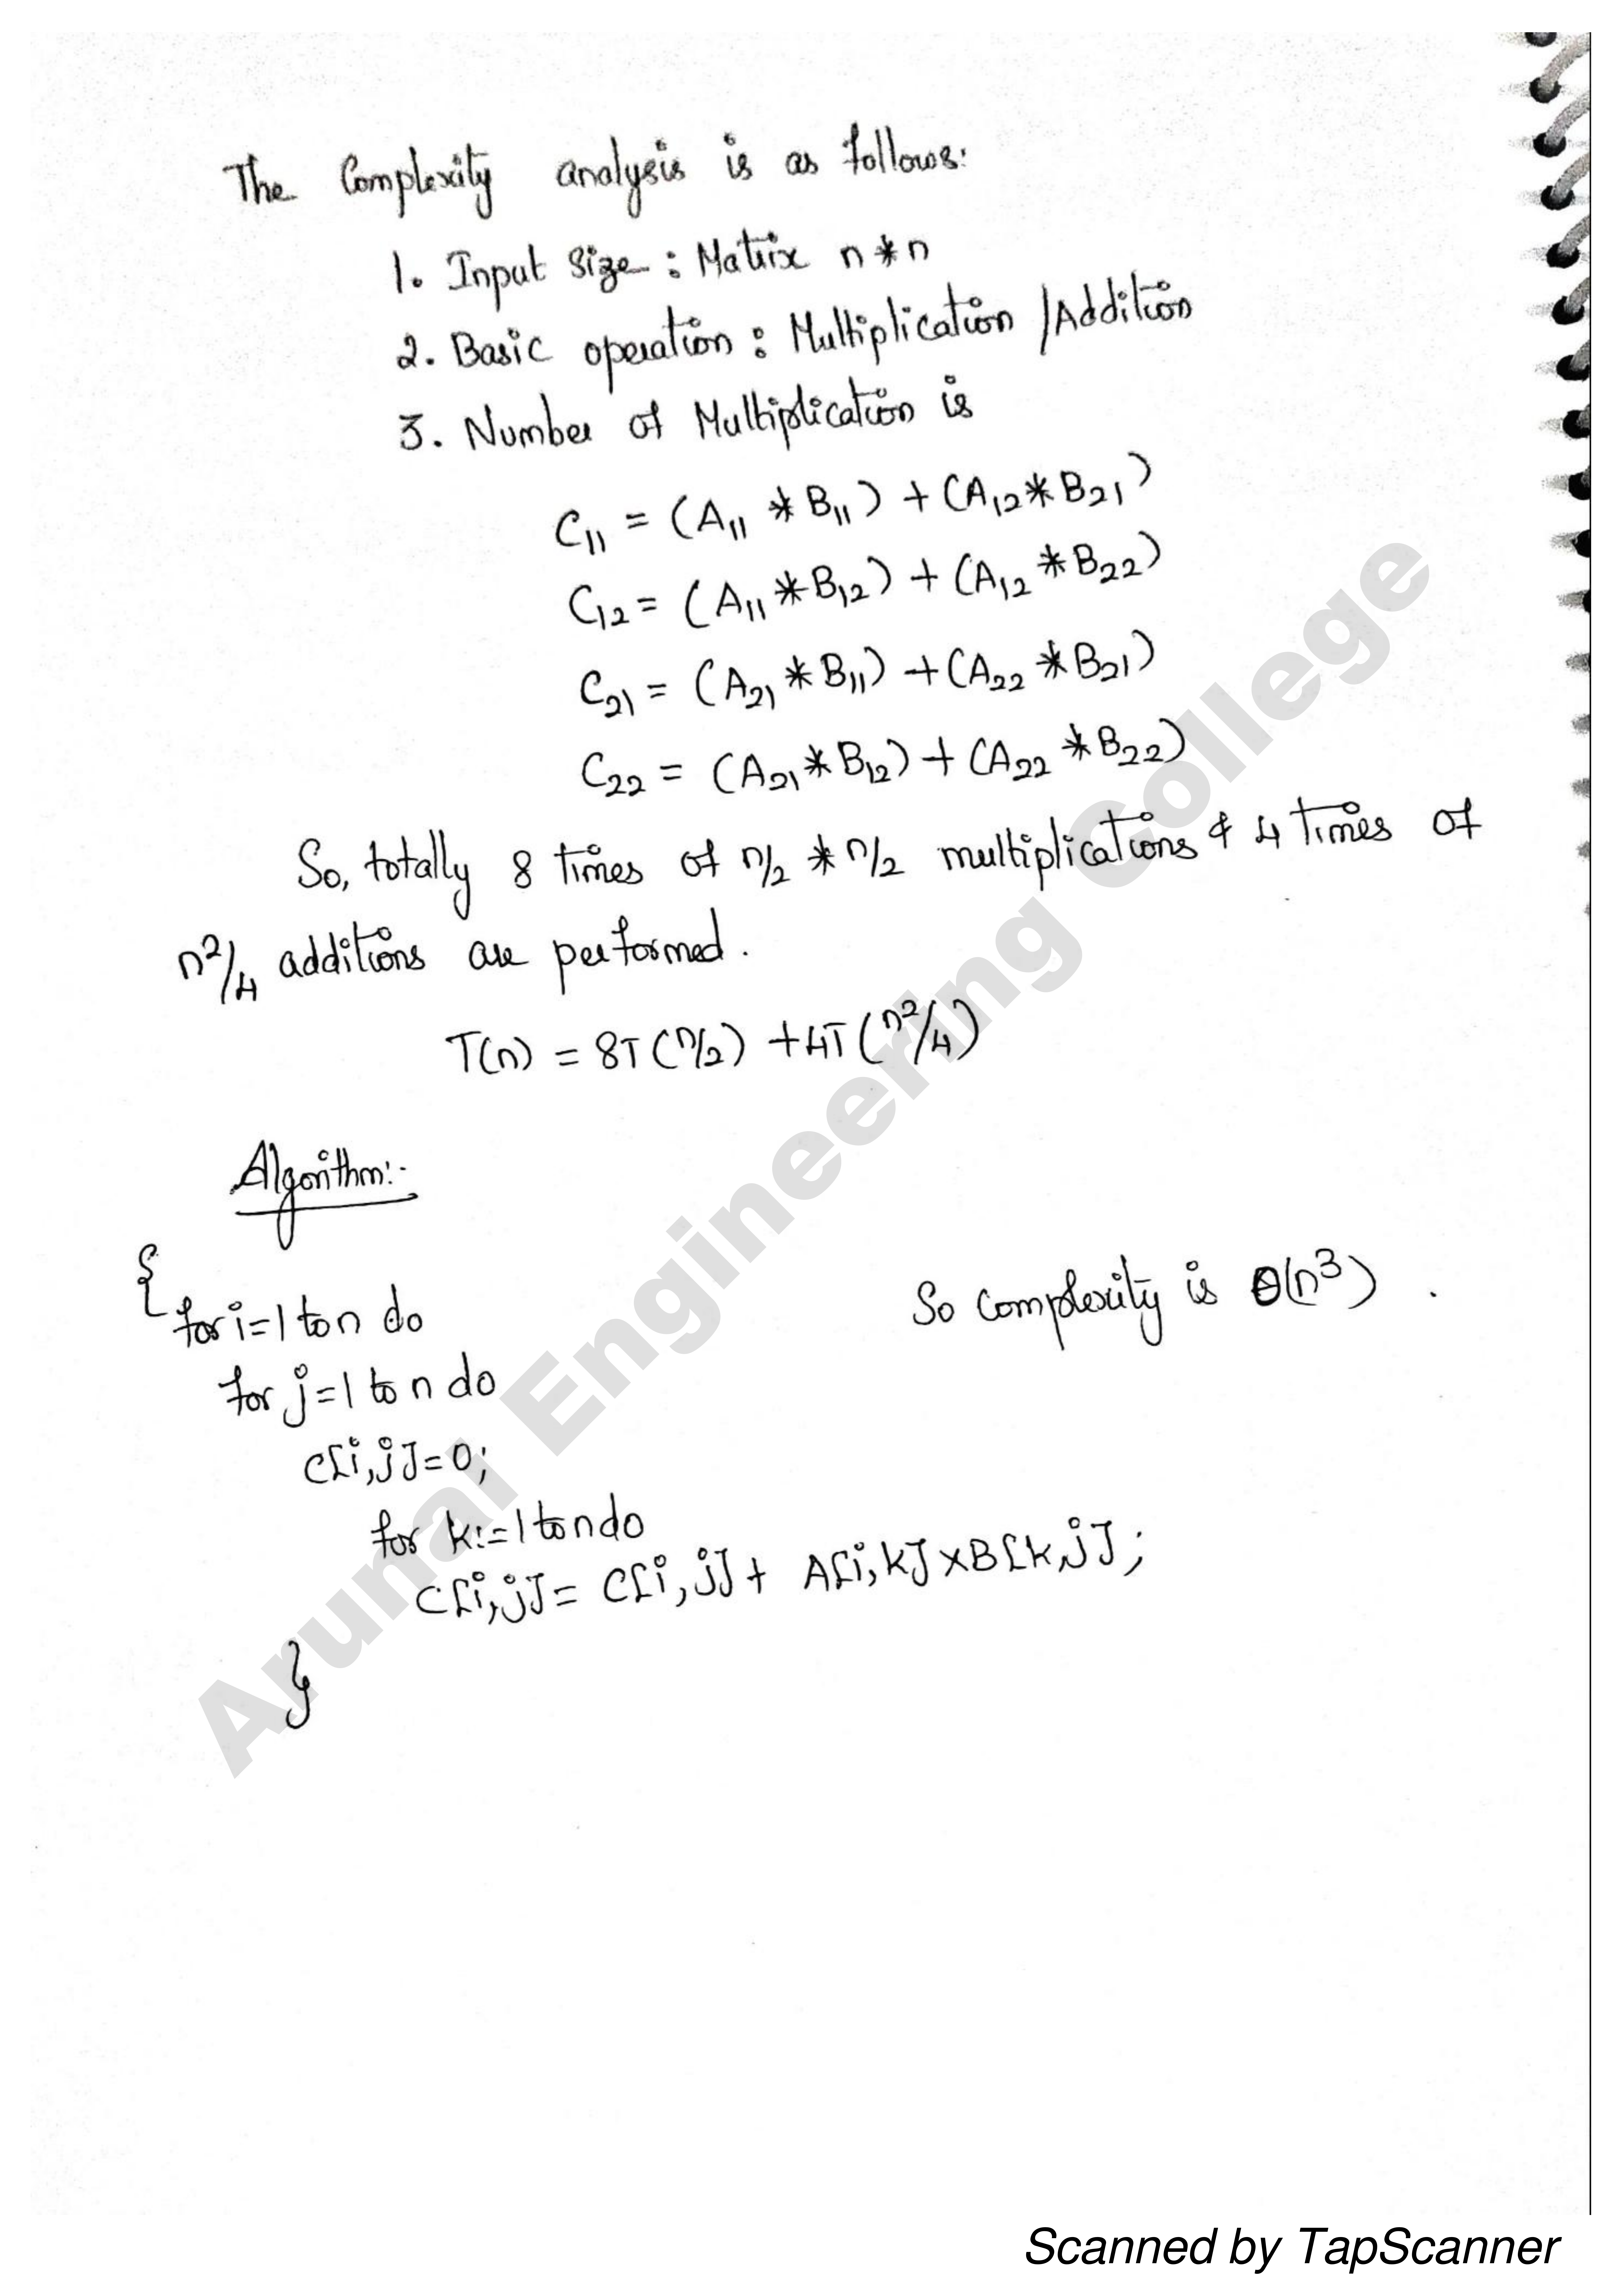 The Complexity analysis is as follows:
1. Input Size : Matrix n * n
2. Basic operation : Multiplication / Addition
3. Number of Multiplication is
C₁₁ = (A₁₁ * B₁₁) + (A₁₂ * B₂₁)
C₁₂ = (A₁₁ * B₁₂) + (A₁₂ * B₂₂)
C₂₁ = (A₂₁ * B₁₁) + (A₂₂ * B₂₁)
C₂₂ = (A₂₁ * B₁₂) + (A₂₂ * B₂₂)
So, totally 8 times of n/2 * n/2 multiplications & 4 times of
n²/4 additions are performed.
T(n) = 8T(n/2) + 4T(n²/4)
Algorithm:-
{
for i=1 to n do
So complexity is Θ(n³) .
for j=1 to n do
C[i,j]=0;
for k:=1 to n do
C[i,j]= C[i,j]+ A[i,k]×B[k,j];
}
Arunai Engineering College
Scanned by TapScanner